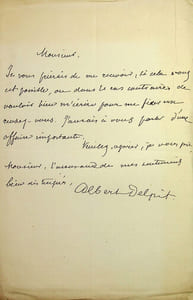 Monsieur,
Je vous prierais de me recevoir, si cela vous
est possible, ou dans le cas contraire de
vouloir bien m'écrire pour me fixer un
rendez-vous. J'aurais à vous parler d'une
affaire importante.
Veuillez agréer, je vous prie
Monsieur, l'assurance de mes sentiments
bien distingués,
Albert Delpit